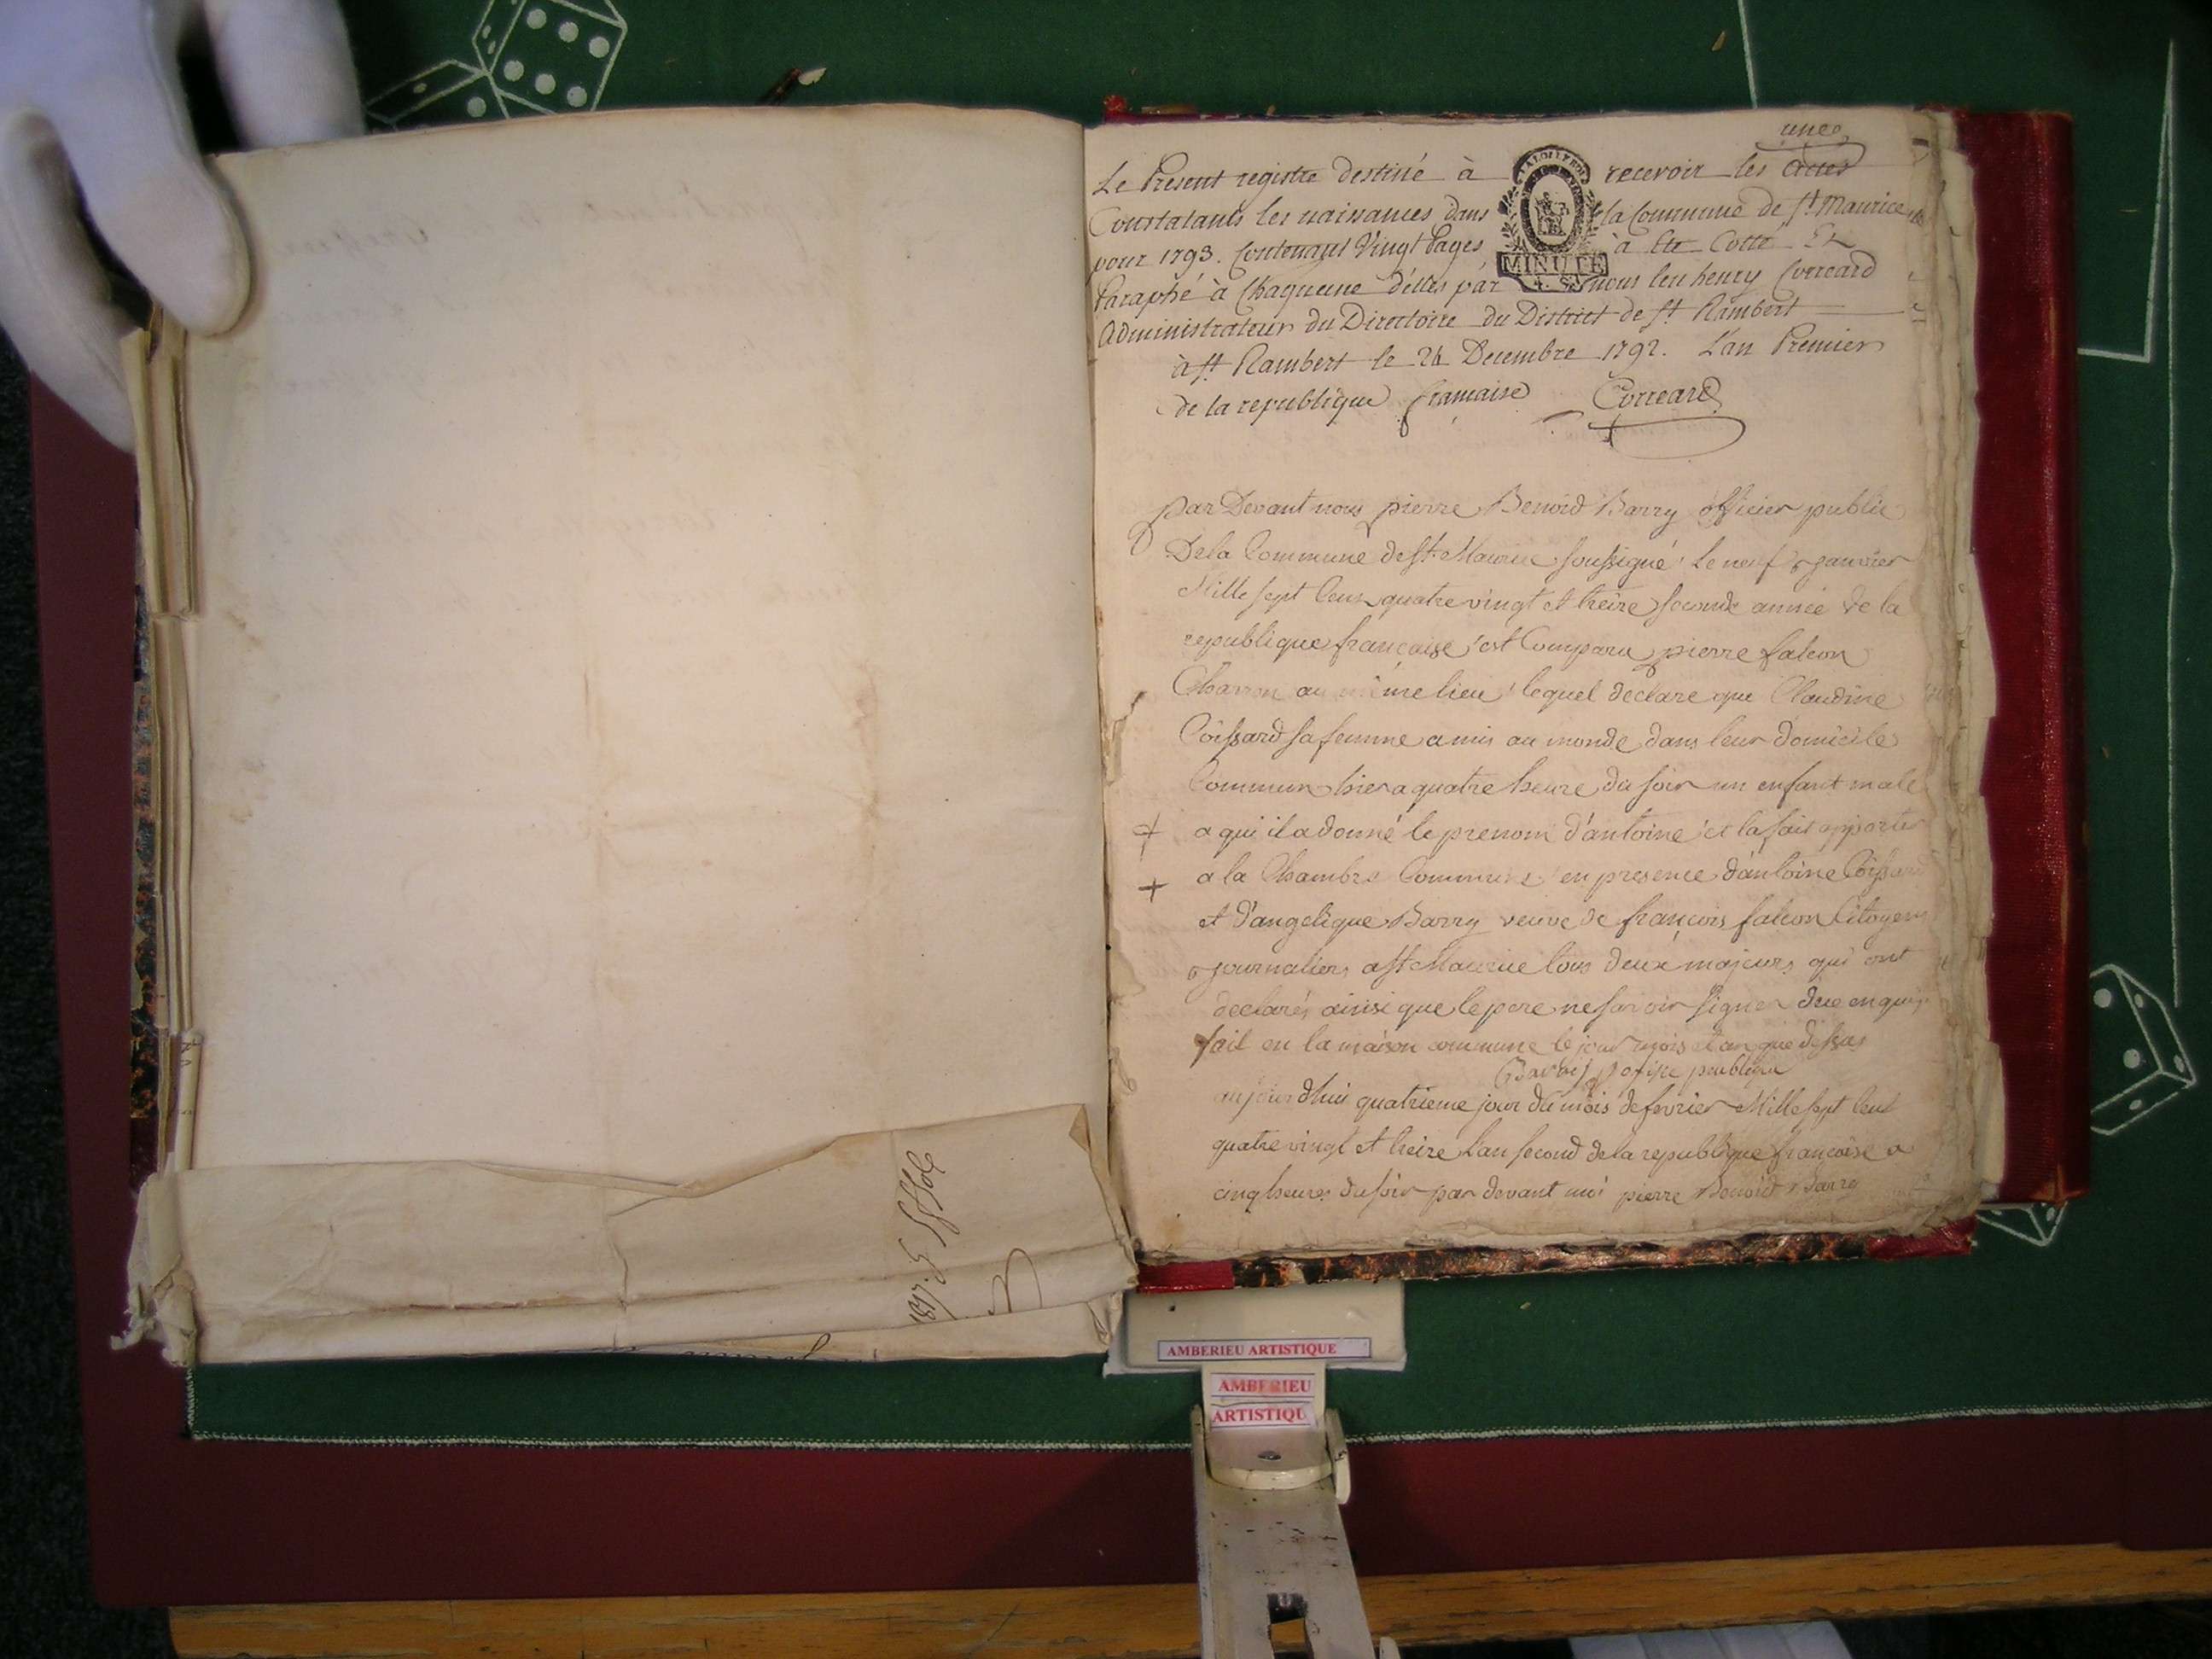 une
Le Present registre destiné à recevoir les actes
Constatants les naissances dans la Commune de St Maurice
pour 1793. Contenant Vingt Pages à Eté Cotté Et
Paraphé à Chaqueune d'élles par nous leu henry Correard
Administrateur du Directoire du District de St Rambert
à St Rambert le 26 Decembre 1792. L'an Premier
de la republique francaise Correard
LA LOI LE ROI
MINUTE
4. S.
par Devant nous pierre Benoid Barry officier public
De la Commune de St Maurice soussigné le neuf janvier
Mille sept Cent quatre vingt et treize seconde année de la
republique francaise est Comparu pierre falcon
Charron au même lieu lequel declare que Claudine
Coissard sa femme a mis au monde dans leur domicile
Commun hier a quatre heure du soir un enfant male
a qui il a donné le prenom d'antoine et la fait apporter
a la Chambre Commune en presence d'antoine Coissard
et d'angelique Barry veuve de françois falcon Citoyens
journaliers a St Maurice tous deux majeurs qui ont
declarés ainsi que le pere ne savoir signer due enquis
fait en la maison commune le jour mois et an que dessus
aujourdhui quatrieme jour du mois de fevrier Mille sept Cent
quatre vingt et treize l'an second de la republique francaise a
cinq heures du soir par devant moi pierre Benoid Barre
1817.
AMBERIEU ARTISTIQUE
AMBERIEU
ARTISTIQU